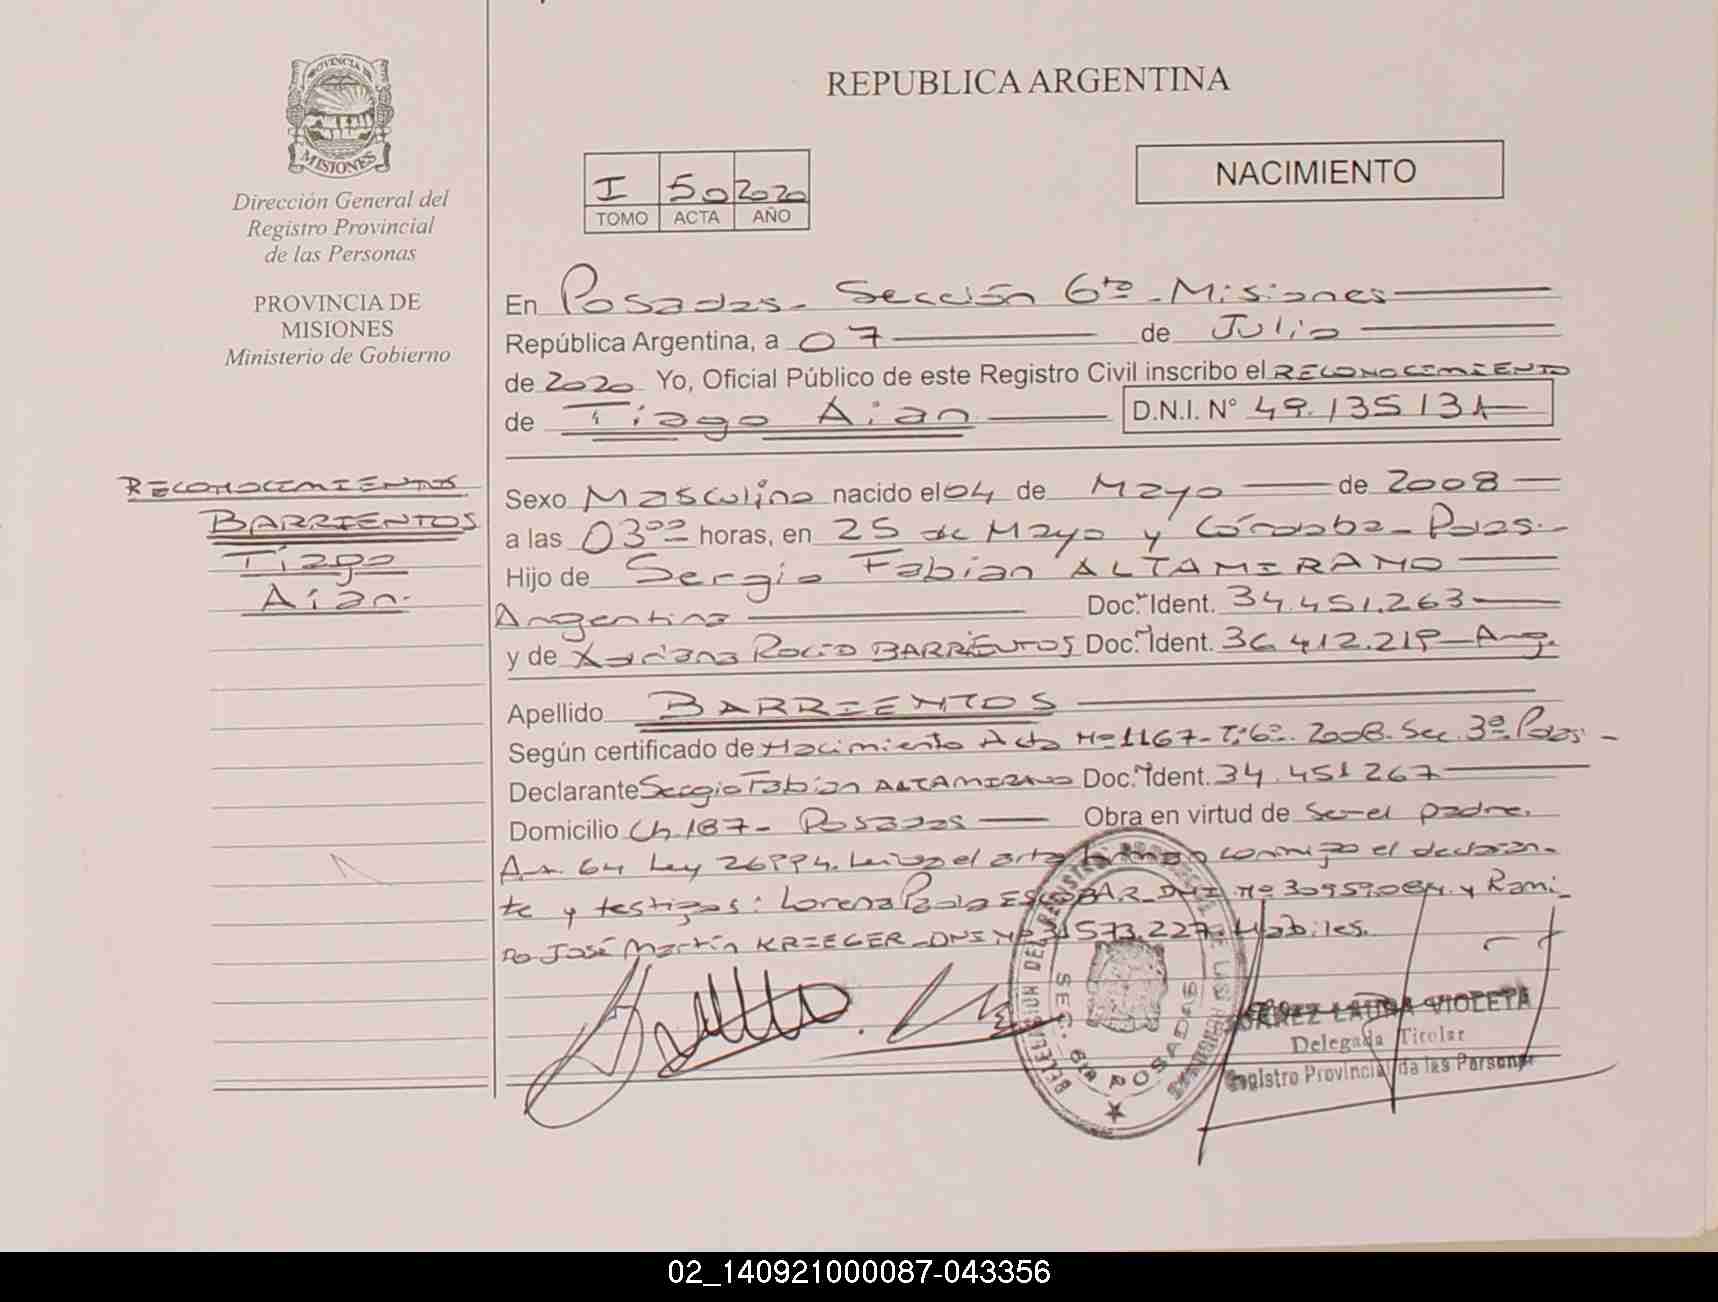 REPUBLICA ARGENTINA
PROVINCIA DE
MISIONES
Dirección General del
Registro Provincial
de las Personas
PROVINCIA DE
MISIONES
Ministerio de Gobierno
I 50 2020
TOMO ACTA AÑO
NACIMIENTO
En Posadas - Sección 6ta - Misiones
República Argentina, a 07 de Julio
de 2020 Yo, Oficial Público de este Registro Civil inscribo el RECONOCIMIENTO
de Tiago Aian D.N.I. N° 49.135131
RECONOCIMIENTOS
BARRIENTOS
Tiago
Aian.
Sexo Masculino nacido el 04 de Mayo de 2008
a las 03:00 horas, en 25 de Mayo y Córdoba - Pdas.-
Hijo de Sergio Fabian ALTAMIRANO
Argentino Doc. Ident. 34.451.263
y de Rocio BARRIENTOS Doc. Ident. 36.412.219 - Arg.
Apellido BARRIENTOS
Según certificado de Nacimiento Acta Nº 1167 - Tº6º. 2008. Sec. 3ª. Pdas -
Declarante Sergio Fabian ALTAMIRANO Doc. Ident. 34.451267
Domicilio Ch 187 - Posadas Obra en virtud de ser el padre.
Art. 64 Ley 26994. el acta conmigo el declaran-
te y testigos: Lorena Paola ESCOBAR - DNI Nº 30959084 y Rami-
ro José Martín KRIEGER - DNI Nº 573.227. Habiles.
DELEGACION DEL REGISTRO DE LAS PERSONAS
SEC. 6ta POSADAS
LAURA VIOLETA
Delegada Titular
Registro Provincial de las Personas
02_140921000087-043356